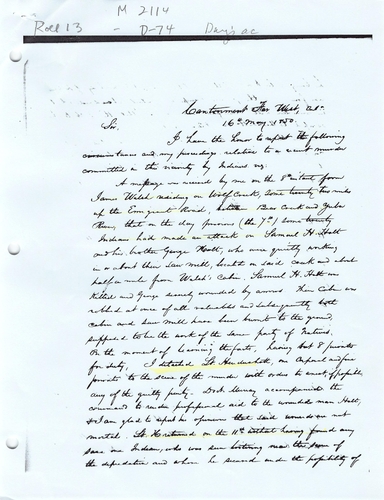 M 2114
Roll 13 - D-74 Day's ac
Cantonment Far West, Cal.
16th May 1850.
Sir,
I have the honor to report the following
circumstances and my proceedings relative to a recent murder
committed in this vicinity by Indians viz.
A message was received by me on the 8th instant from
James Walsh residing on Wolf Creek, some twenty two miles
up the Emigrant Road, between Bear Creek and Yuba
River, that on the day previous (the 7th) some twenty
Indians had made an attack on Samuel H. Holt
and his brother George Holt, who were quietly working
in or about their Saw Mill, located on said creek and about
half a mile from Walsh's Cabin, Samuel H. Holt was
Killed and George severely wounded by arrows. Their Cabin was
robbed at once of all valuables and subsequently both
cabin and saw mill have been burnt to the ground,
supposed to be the work of the same party of Natives.
On the moment of learning the facts, having but 8 privates
for duty, I detailed Lt. Hendershott, one Corporal and five
privates to the scene of the murder with orders to arrest, if possible
any of the guilty party. Doct. Murray accompanied the
command to render professional aid to the wounded man Holt,
& I am glad to report his opinion that said wounds are not
mortal. Lt. H returned on the 11th instant having found only
some one Indian, who was seen lurking near the scene of
the depredation and whom he secured under the possibility of